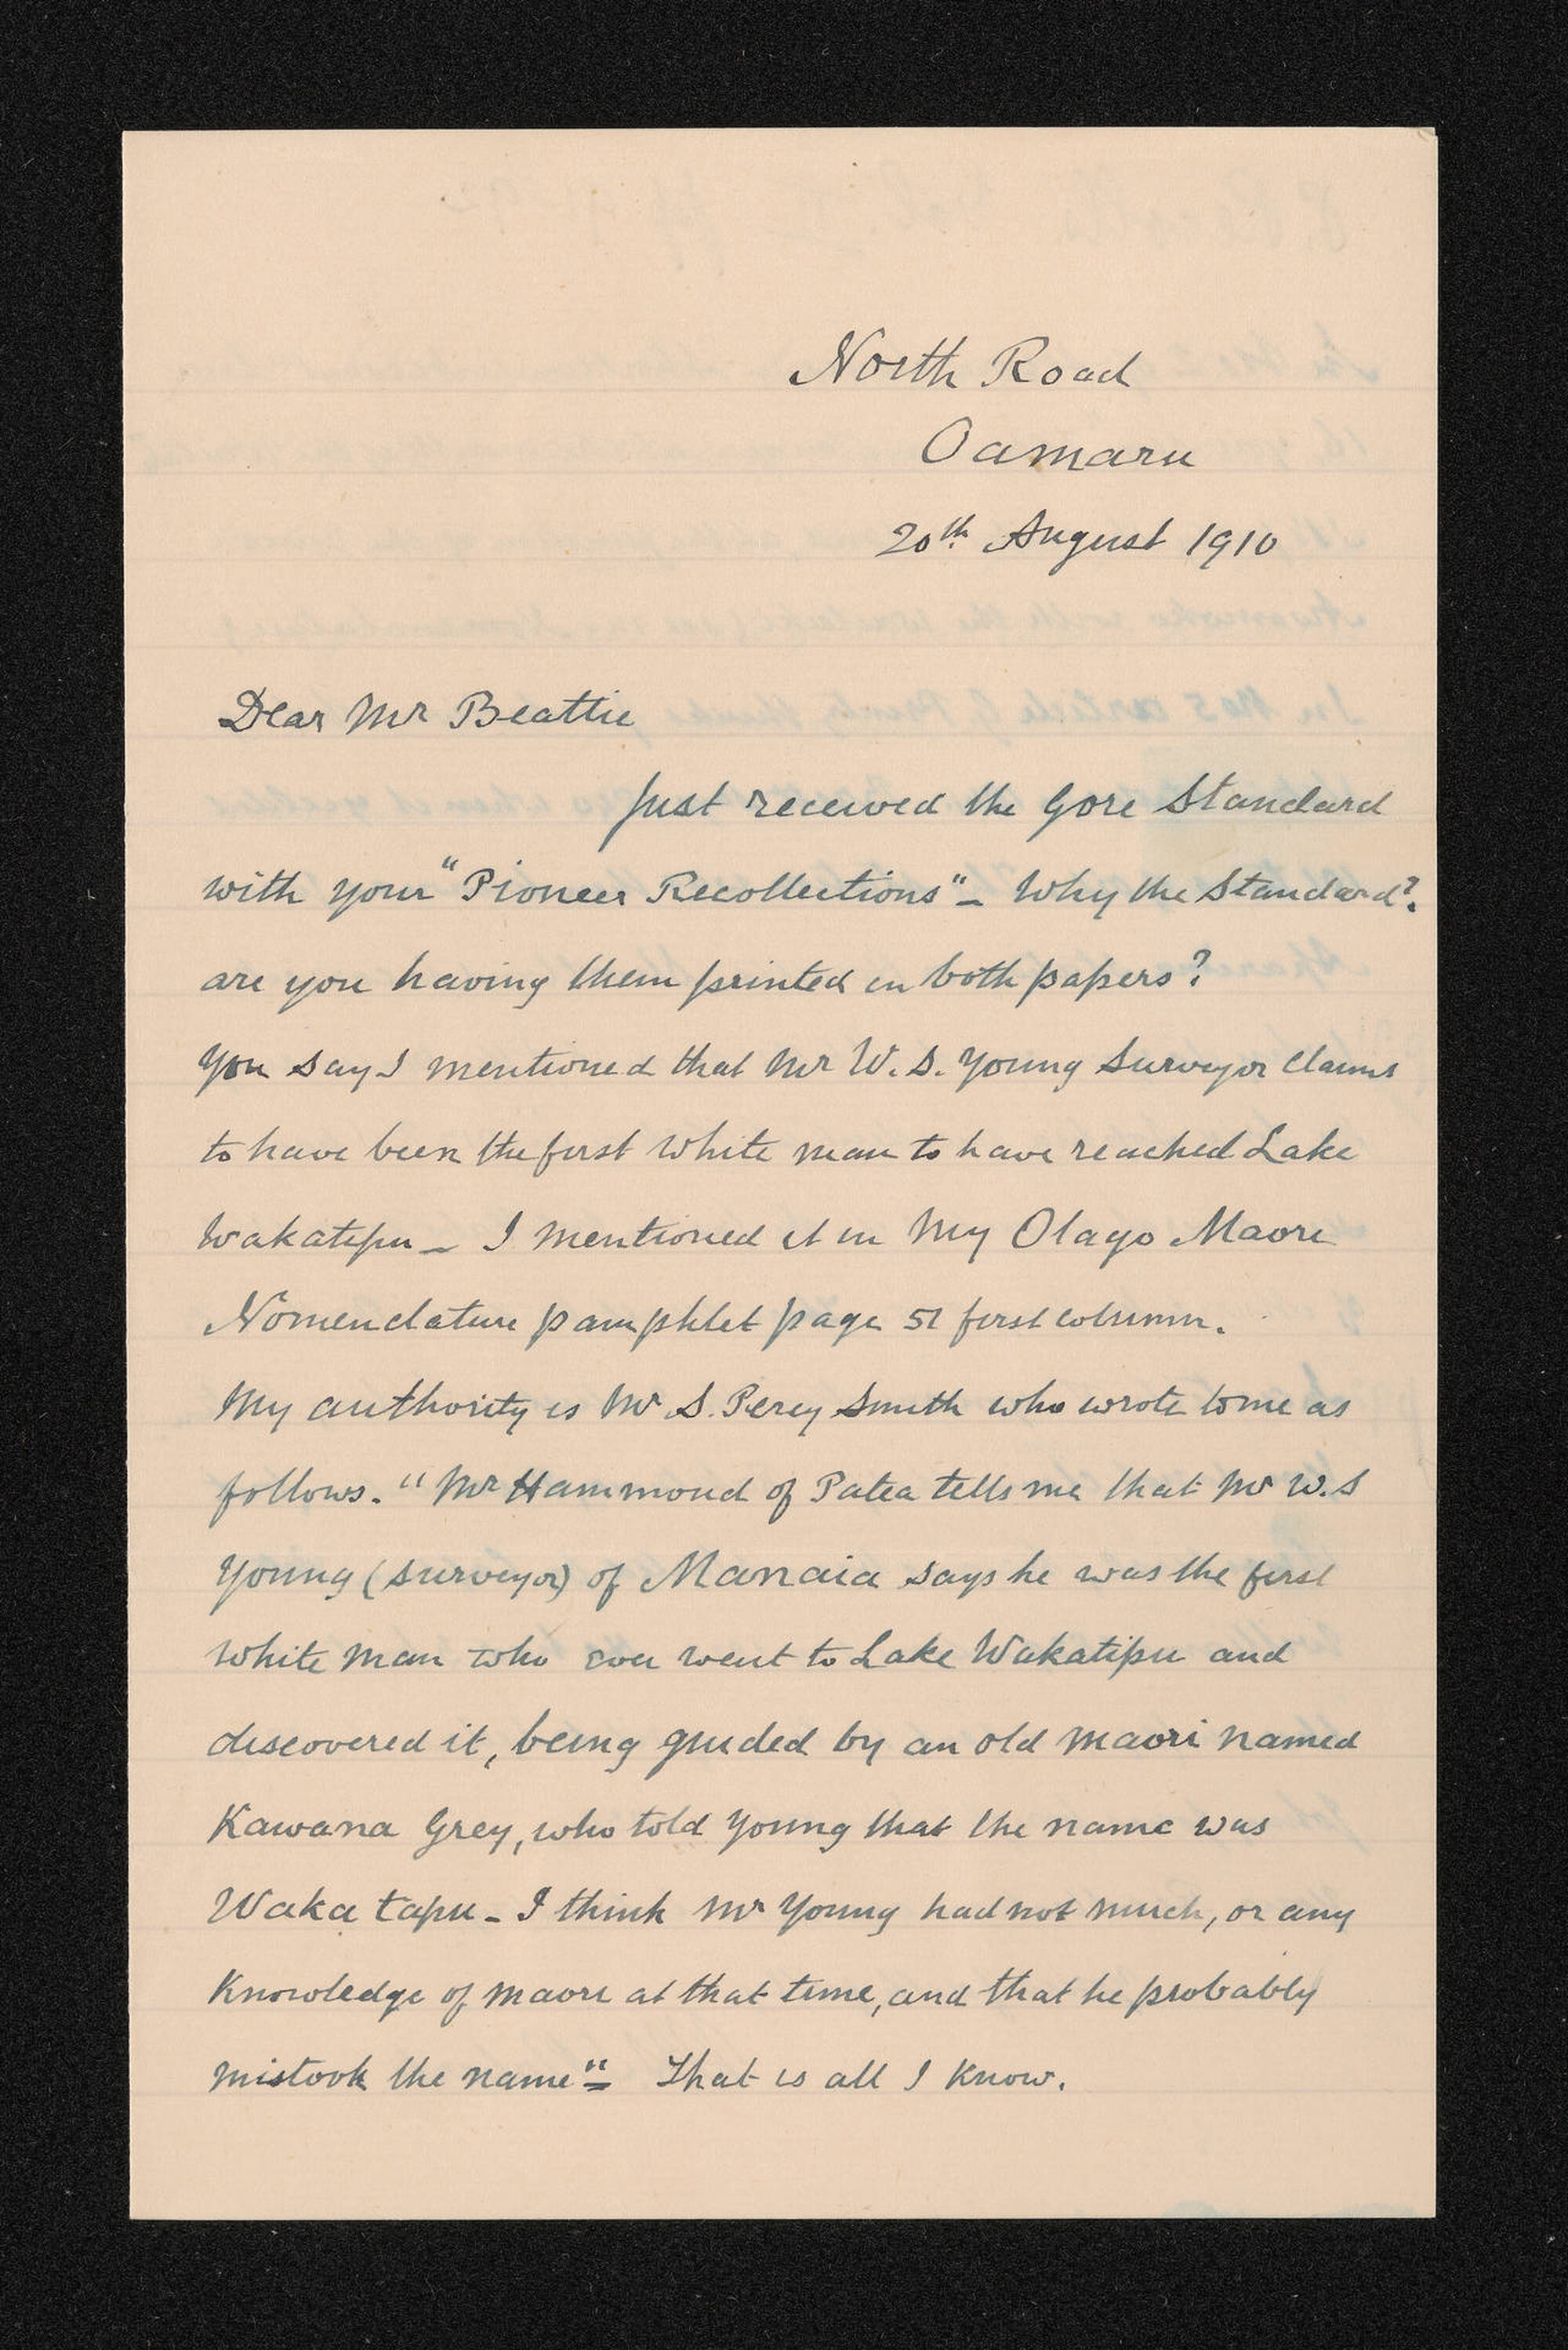 North Road
Oamaru
20th. August 1910
Dear Mr Beattie
Just received the Gore Standard
with your "Pioneer Recollections" - Why the Standard?
are you having them printed in both papers?
You say I mentioned that Mr W. S. Young Surveyor claims
to have been the first white man to have reached Lake
Wakatipu - I mentioned it in my Otago Maori
Nomenclature pamphlet page 51 first column.
My authority is Mr S. Percy Smith who wrote to me as
follows. "Mr Hammond of Patea tells me that Mr W.S
Young (surveyor) of Manaia says he was the first
white man who ever went to Lake Wakatipu and
discovered it, being guided by an old maori named
Kawana Grey, who told Young that the name was
Waka tapu - I think Mr Young had not much, or any
Knowledge of maori at that time, and that he probably
mistook the name" - That is all I know.